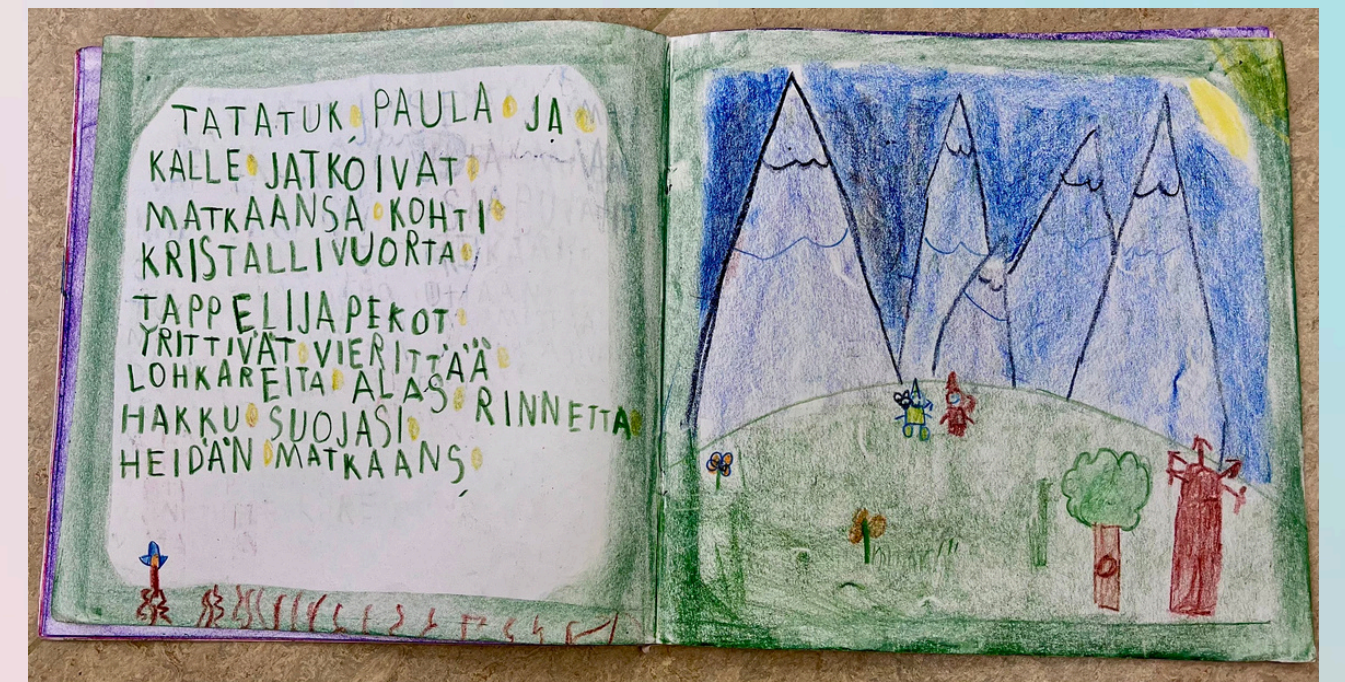 TATATUK, PAULA JA
KALLE JATKOIVAT
MATKAANSA KOHTI
KRISTALLIVUORTA
TAPPELIJAPEKOT
YRITTIVÄT VIERITTÄÄ
LOHKAREITA ALAS RINNETTA
HAKKU SUOJASI
HEIDÄN MATKAANS,